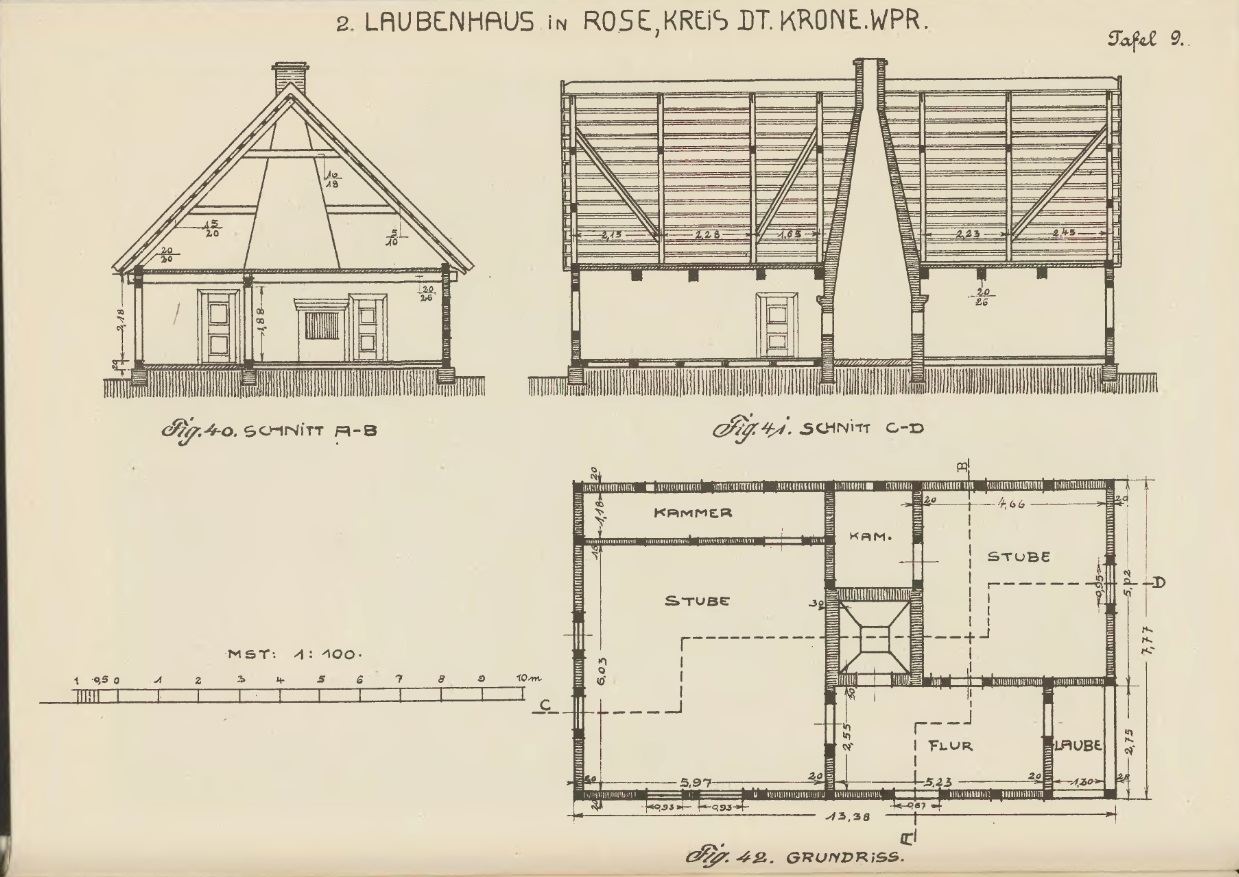 2. LAUBENHAUS in ROSE, KREIS DT. KRONE. WPR.
Tafel 9.
16
18
15
20
20
20
20
26
2,18
1,88
Fig. 40. SCHNITT A-B
2,15
2,28
1,65
2,23
2,45
20
26
Fig. 41. SCHNITT C-D
MST: 1:100.
1 0,5 0 1 2 3 4 5 6 7 8 9 10 m
B
20
1,18
KAMMER
16
KAM.
20
4,66
STUBE
STUBE
0,95
5,02
D
30
7,77
6,03
C
2,55
FLUR
LAUBE
2,75
5,97
20
5,23
20
1,30
0,93
0,93
0,87
13,38
A
Fig. 42. GRUNDRISS.